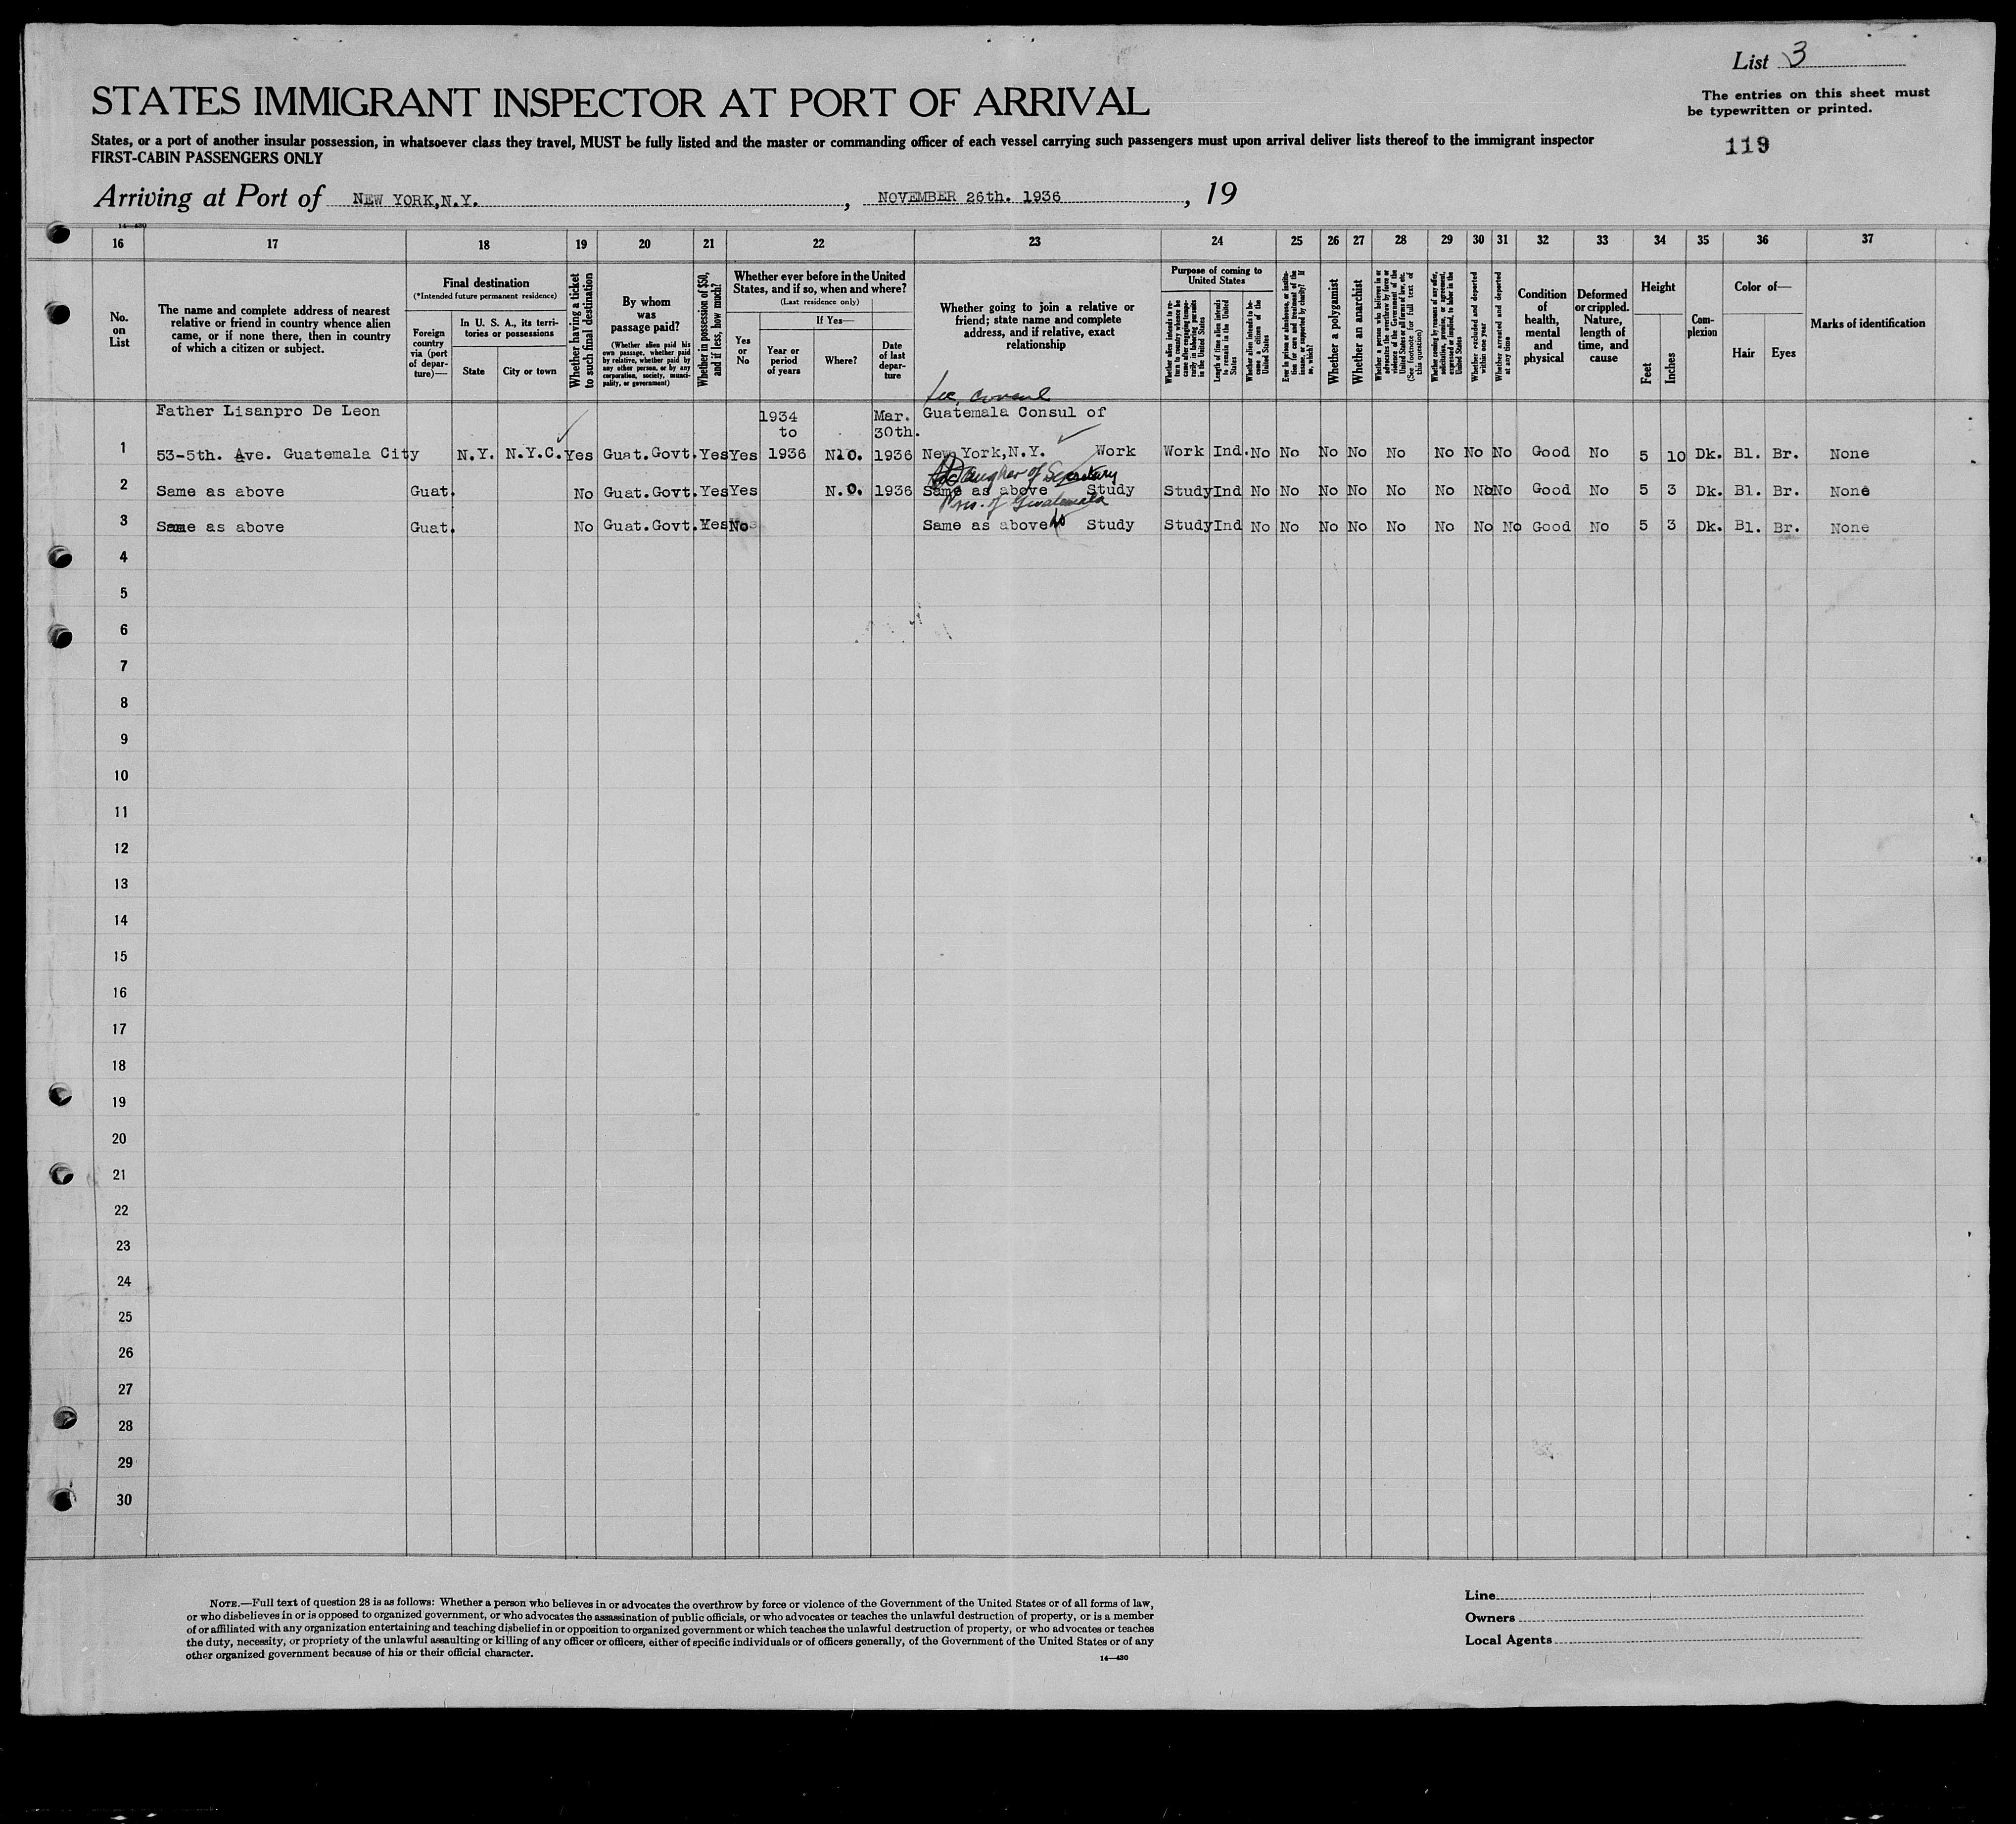 List 3
STATES IMMIGRANT INSPECTOR AT PORT OF ARRIVAL
The entries on this sheet must
be typewritten or printed.
119
States, or a port of another insular possession, in whatsoever class they travel, MUST be fully listed and the master or commanding officer of each vessel carrying such passengers must upon arrival deliver lists thereof to the immigrant inspector
FIRST-CABIN PASSENGERS ONLY
Arriving at Port of NEW YORK,N.Y. , NOVEMBER 26th. 1936 , 19
14—430
16 17 18 19 20 21 22 23 24 25 26 27 28 29 30 31 32 33 34 35 36 37
No.
on
List
The name and complete address of nearest
relative or friend in country whence alien
came, or if none there, then in country
of which a citizen or subject.
Final destination
(*Intended future permanent residence)
Foreign
country
via (port
of depar-
ture)—
In U. S. A., its terri-
tories or possessions
State
City or town
Whether having a ticket
to such final destination
By whom
was
passage paid?
(Whether alien paid his
own passage, whether paid
by relative, whether paid by
any other person, or by any
corporation, society, munici-
pality, or government)
Whether in possession of $50,
and if less, how much?
Whether ever before in the United
States, and if so, when and where?
(Last residence only)
Yes
or
No
If Yes—
Year or
period
of years
Where?
Date
of last
depar-
ture
Whether going to join a relative or
friend; state name and complete
address, and if relative, exact
relationship
Purpose of coming to
United States
Whether alien intends to re-
turn to country whence he
came after engaging tempo-
rarily in laboring pursuits
in the United States
Length of time alien intends
to remain in the United
States
Whether alien intends to be-
come a citizen of the
United States
Ever in prison or almshouse, or institu-
tion for care and treatment of the
insane, or supported by charity? If
so, which?
Whether a polygamist
Whether an anarchist
Whether a person who believes in or
advocates the overthrow by force or
violence of the Government of the
United States or all forms of law, etc.
(See footnote for full text of
this question)
Whether coming by reason of any offer,
solicitation, promise, or agreement,
expressed or implied, to labor in the
United States
Whether excluded and deported
within one year
Whether arrested and deported
at any time
Condition
of
health,
mental
and
physical
Deformed
or crippled.
Nature,
length of
time, and
cause
Height
Feet
Inches
Com-
plexion
Color of—
Hair
Eyes
Marks of identification
consul
Father Lisanpro De Leon 1934 Mar. Guatemala Consul of
to 30th.
1 53-5th. Ave. Guatemala City N.Y. N.Y.C. Yes Guat.Govt. Yes Yes 1936 N.O. 1936 New York,N.Y. Work Work Ind. No No No No No No No No Good No 5 10 Dk. Bl. Br. None
Daugher of Secretary
2 Same as above Guat. No Guat.Govt. Yes Yes N.O. 1936 Same as above Study Study Ind No No No No No No No No Good No 5 3 Dk. Bl. Br. None
Pres. of Guatemala
3 Same as above Guat. No Guat.Govt. Yes No Same as above Study Study Ind No No No No No No No No Good No 5 3 Dk. Bl. Br. None
4
5
6
7
8
9
10
11
12
13
14
15
16
17
18
19
20
21
22
23
24
25
26
27
28
29
30
NOTE.—Full text of question 28 is as follows: Whether a person who believes in or advocates the overthrow by force or violence of the Government of the United States or of all forms of law,
or who disbelieves in or is opposed to organized government, or who advocates the assassination of public officials, or who advocates or teaches the unlawful destruction of property, or is a member
of or affiliated with any organization entertaining and teaching disbelief in or opposition to organized government or which teaches the unlawful destruction of property, or who advocates or teaches
the duty, necessity, or propriety of the unlawful assaulting or killing of any officer or officers, either of specific individuals or of officers generally, of the Government of the United States or of any
other organized government because of his or their official character.
14—430
Line
Owners
Local Agents